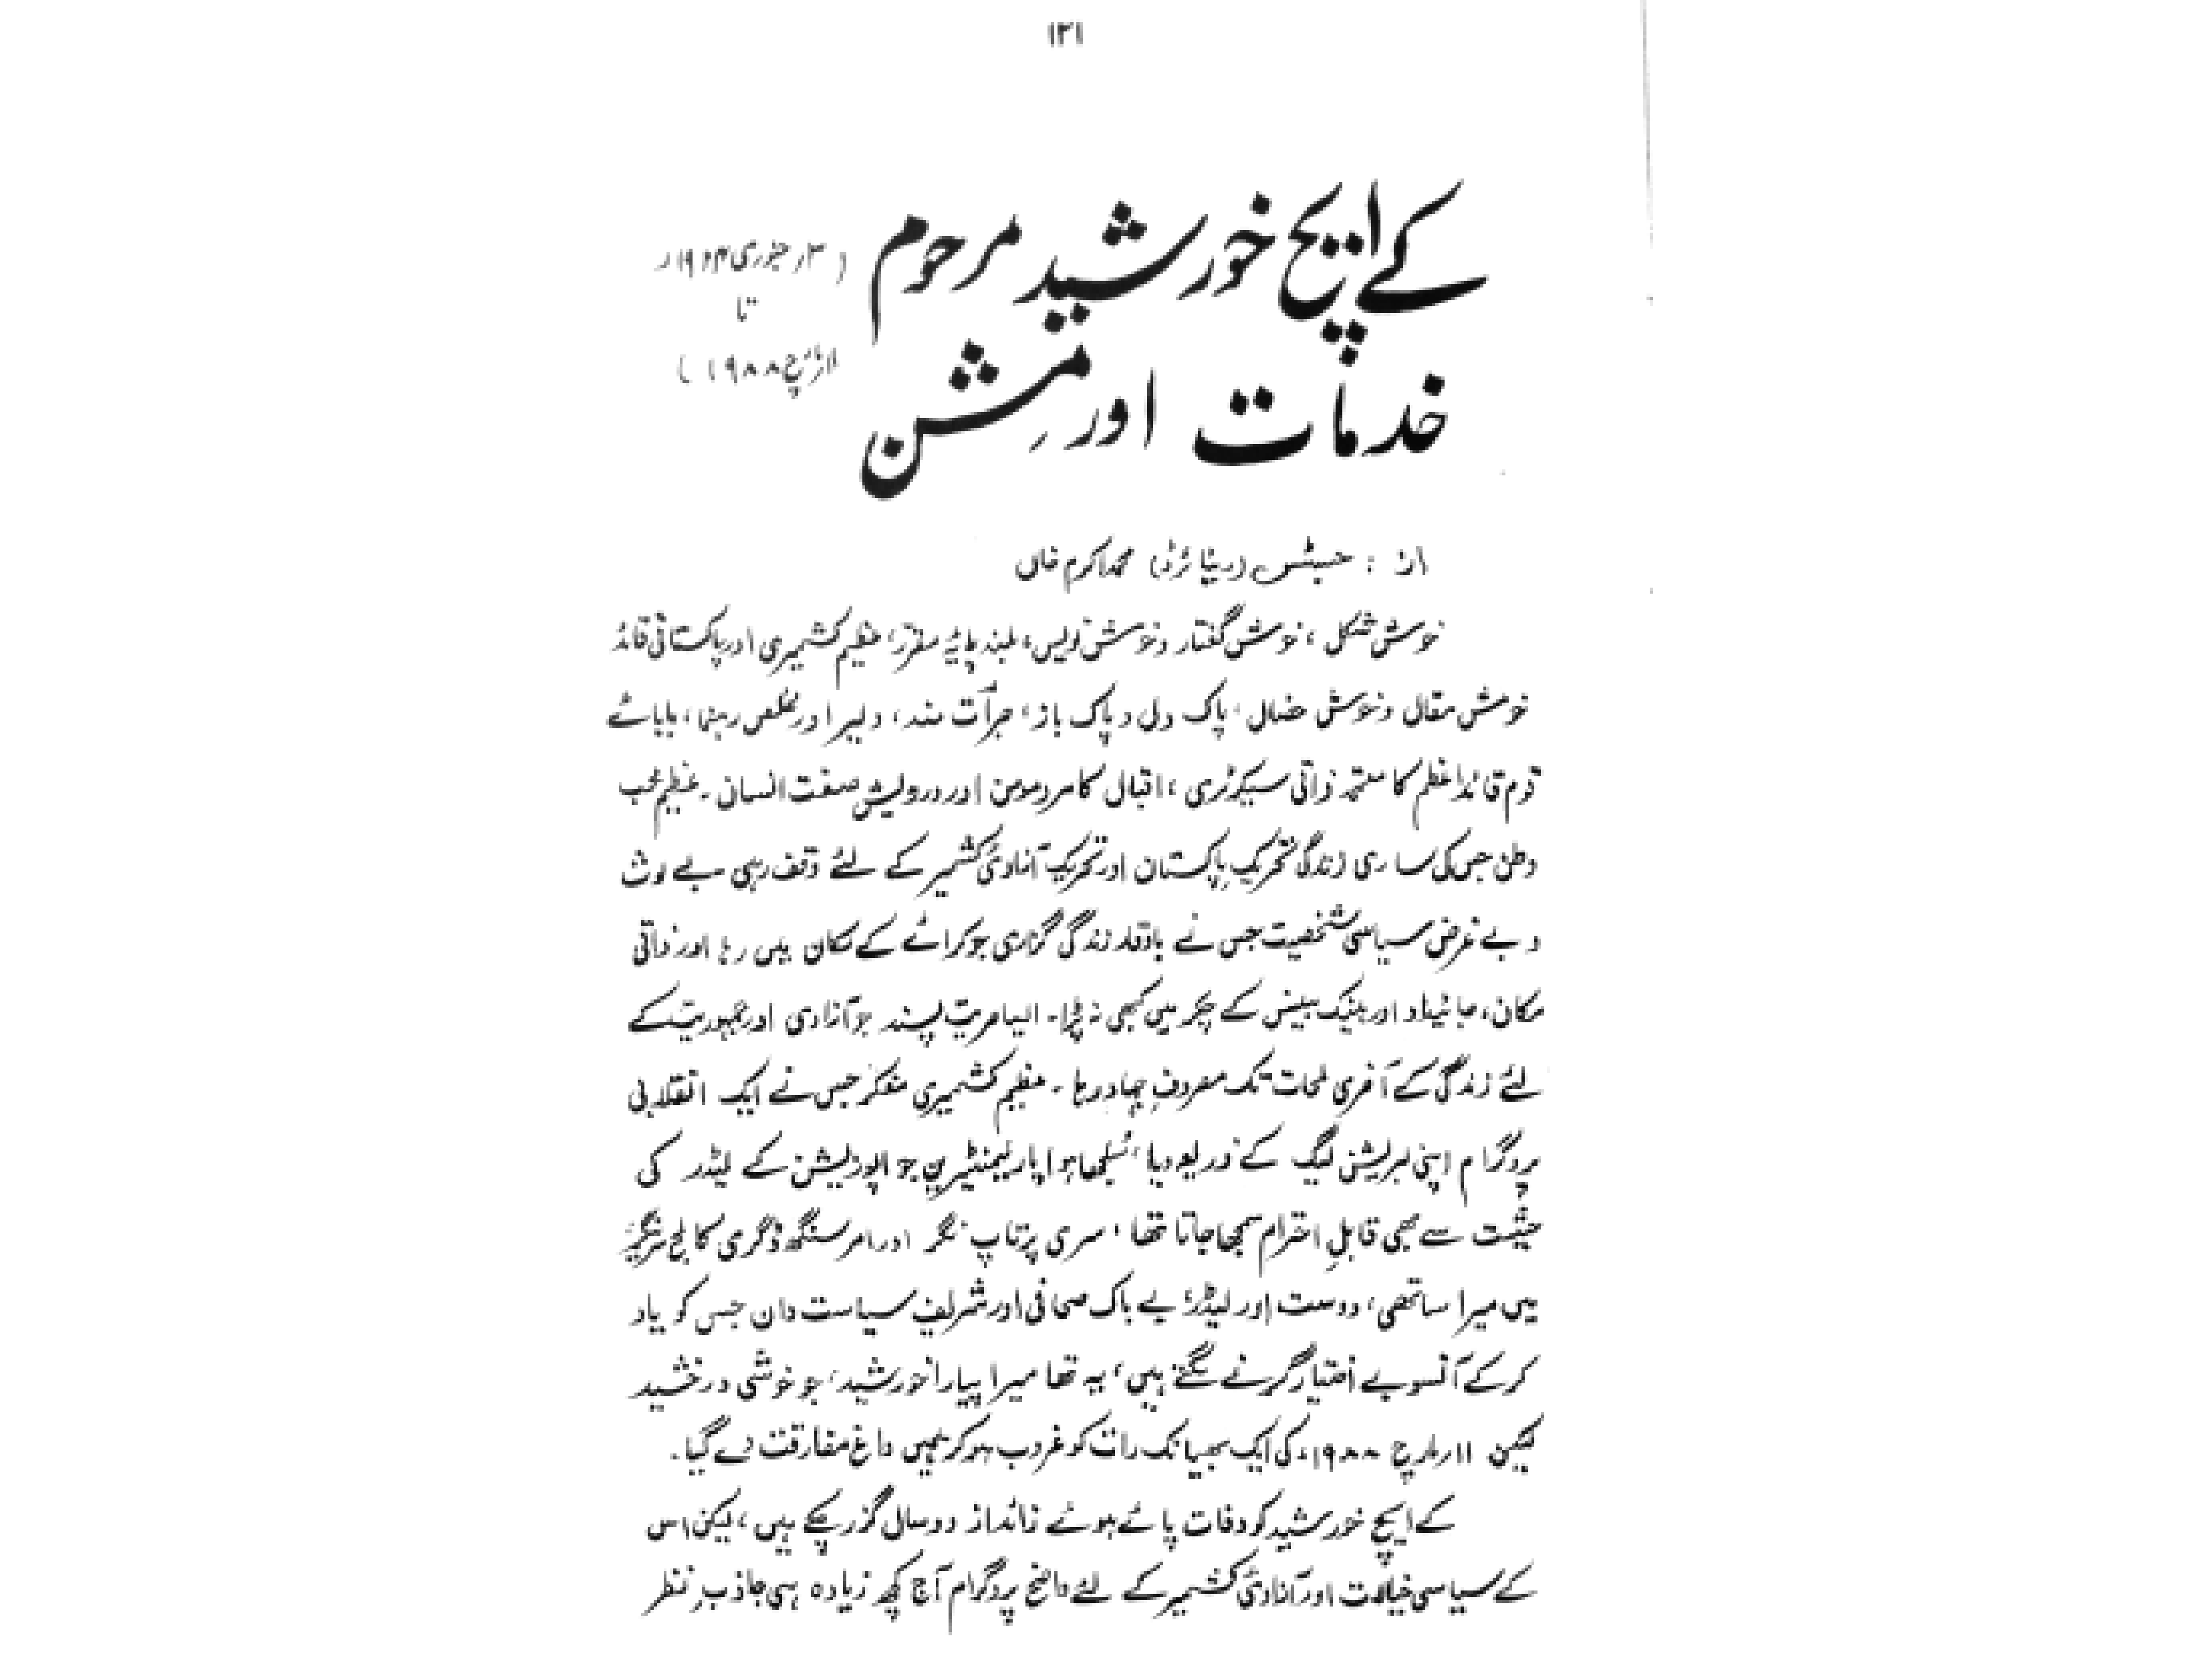 ۱۳۱
کے ایچ خورشید مرحوم
(۳ر جنوری ۱۹۲۴ر
تا
۱۱ مارچ ۱۹۸۸)
خدمات اور مِشن
از : جسٹس (ریٹائرڈ) محمد اکرم خاں
خوش شکل، خوش گفتار و خوش نویس، بلند پایئے مقرر، عظیم کشمیری اور پاکستانی قائد
خوش مقال و خوش خصال، پاک دل و پاک باز، جرأت مند، دلیر اور مخلص رہنما، بابائے
قوم قائداعظم کا معتمد ذاتی سیکرٹری، اقبال کا مرد مومن اور درویش صفت انسان۔ عظیم محب
وطن جس کی ساری زندگی تحریکِ پاکستان اور تحریک آزادیٔ کشمیر کے لئے وقف رہی بے لوث
و بے غرض سیاسی شخصیت جس نے باوقار زندگی گزاری جو کرائے کے مکان میں رہا اور ذاتی
مکان، جائیداد اور بینک بیلنس کے چکر میں کبھی نہ پڑا۔ ایسا حریت پسند جو آزادی اور جمہوریت کے
لئے زندگی کے آخری لمحات تک مصروفِ جہاد رہا۔ عظیم کشمیری مفکر جس نے ایک انقلابی
پروگرام اپنی لبریشن لیگ کے ذریعہ دیا، سُلجھا ہوا پارلیمنٹیرین جو اپوزیشن کے لیڈر کی
حیثیت سے بھی قابلِ احترام سمجھا جاتا تھا، سری پرتاپ نگر اور امر سنگھ ڈگری کالج سرینگر
میں میرا ساتھی، دوست اور لیڈر؛ بے باک صحافی اور شریف سیاست دان جس کو یاد
کرکے آنسو بے اختیار گرنے لگتے ہیں، یہ تھا میرا پیارا خورشید، جو خوشی و رخشید
لیکن ۱۱ر مارچ ۱۹۸۸ء کی ایک بھیانک رات کو غروب ہوکر ہمیں داغِ مفارقت دے گیا۔
کے ایچ خورشید کو وفات پائے ہوئے زائد از دو سال گزر چکے ہیں، لیکن اس
کے سیاسی خیالات اور آزادیٔ کشمیر کے لئے واضح پروگرام آج کچھ زیادہ ہی جاذبِ نظر